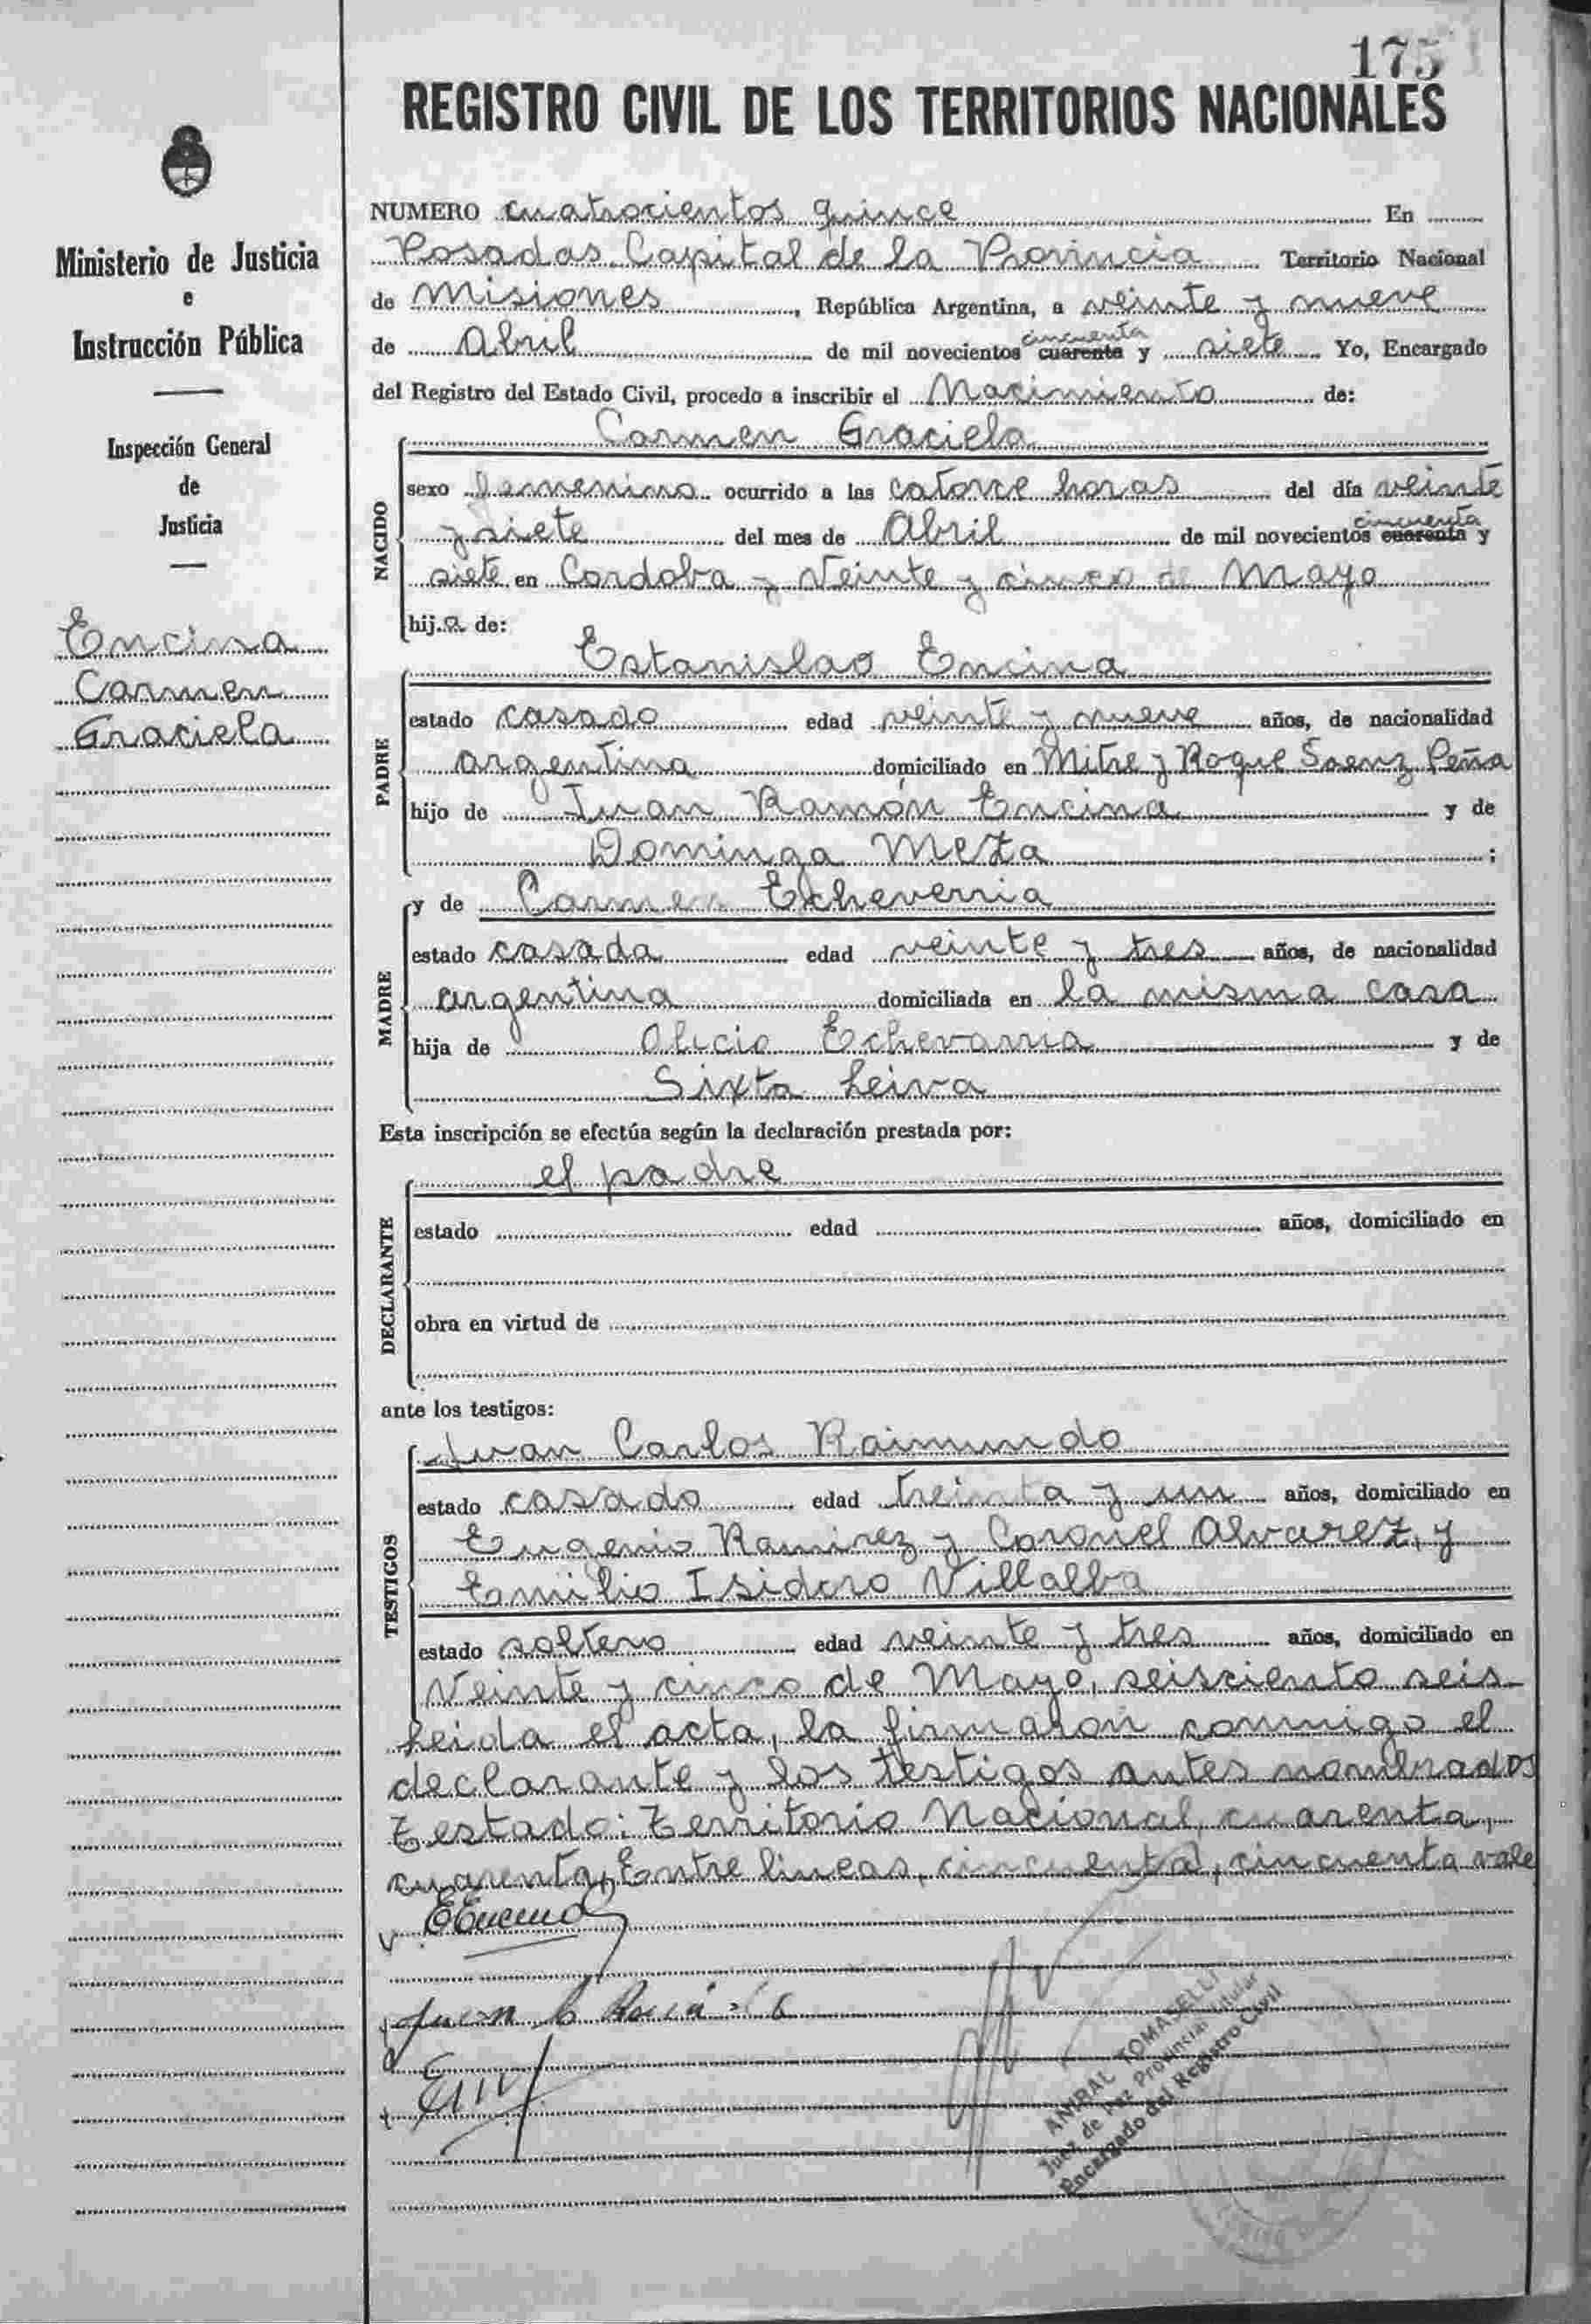 175
REGISTRO CIVIL DE LOS TERRITORIOS NACIONALES
Ministerio de Justicia
e
Instrucción Pública
Inspección General
de
Justicia
Encina
Carmen
Graciela
NUMERO cuatrocientos quince En
Posadas Capital de la Provincia Territorio Nacional
de Misiones, República Argentina, a veinte y nueve
cincuenta
de Abril de mil novecientos cuarenta y siete Yo, Encargado
del Registro del Estado Civil, procedo a inscribir el Nacimiento de:
NACIDO
Carmen Graciela
sexo femenino ocurrido a las catorce horas del día veinte
cincuenta
y siete del mes de Abril de mil novecientos cuarenta y
siete en Cordoba y Veinte y cinco de Mayo
hija de:
PADRE
Estanislao Encina
estado casado edad veinte y nueve años, de nacionalidad
argentina domiciliado en Mitre y Roque Saenz Peña
hijo de Juan Ramón Encina y de
Dominga Meza ;
MADRE
y de Carmen Echeverria
estado casada edad veinte y tres años, de nacionalidad
argentina domiciliada en la misma casa
hija de Alicio Echevarria y de
Sixta Leiva
Esta inscripción se efectúa según la declaración prestada por:
DECLARANTE
el padre
estado edad años, domiciliado en
obra en virtud de
ante los testigos:
TESTIGOS
Juan Carlos Raimundo
estado casado edad treinta y un años, domiciliado en
Eugenio Ramirez y Coronel Alvarez, y
Emilio Isidoro Villalba
estado soltero edad veinte y tres años, domiciliado en
Veinte y cinco de Mayo, seisciento seis
Leida el acta, la firmaron conmigo el
declarante y los testigos antes nombrados
Testado: Territorio Nacional, cuarenta,
cuarenta, Entre lineas, cincuenta, cincuenta vale
EEncina
Juan C
ANIBAL TOMASELLI
Juez de Paz Provincial Titular
Encargado del Registro Civil